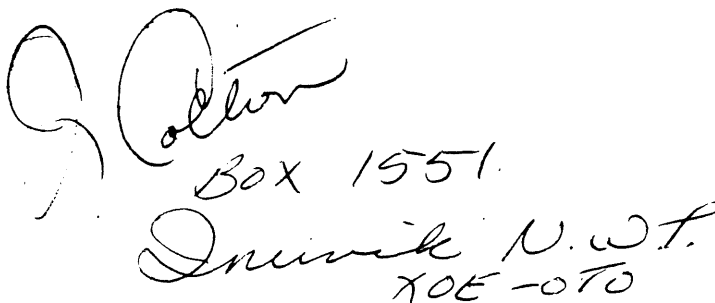 G Colton
BOX 1551.
Inuvik N.W.T.
XOE-OTO